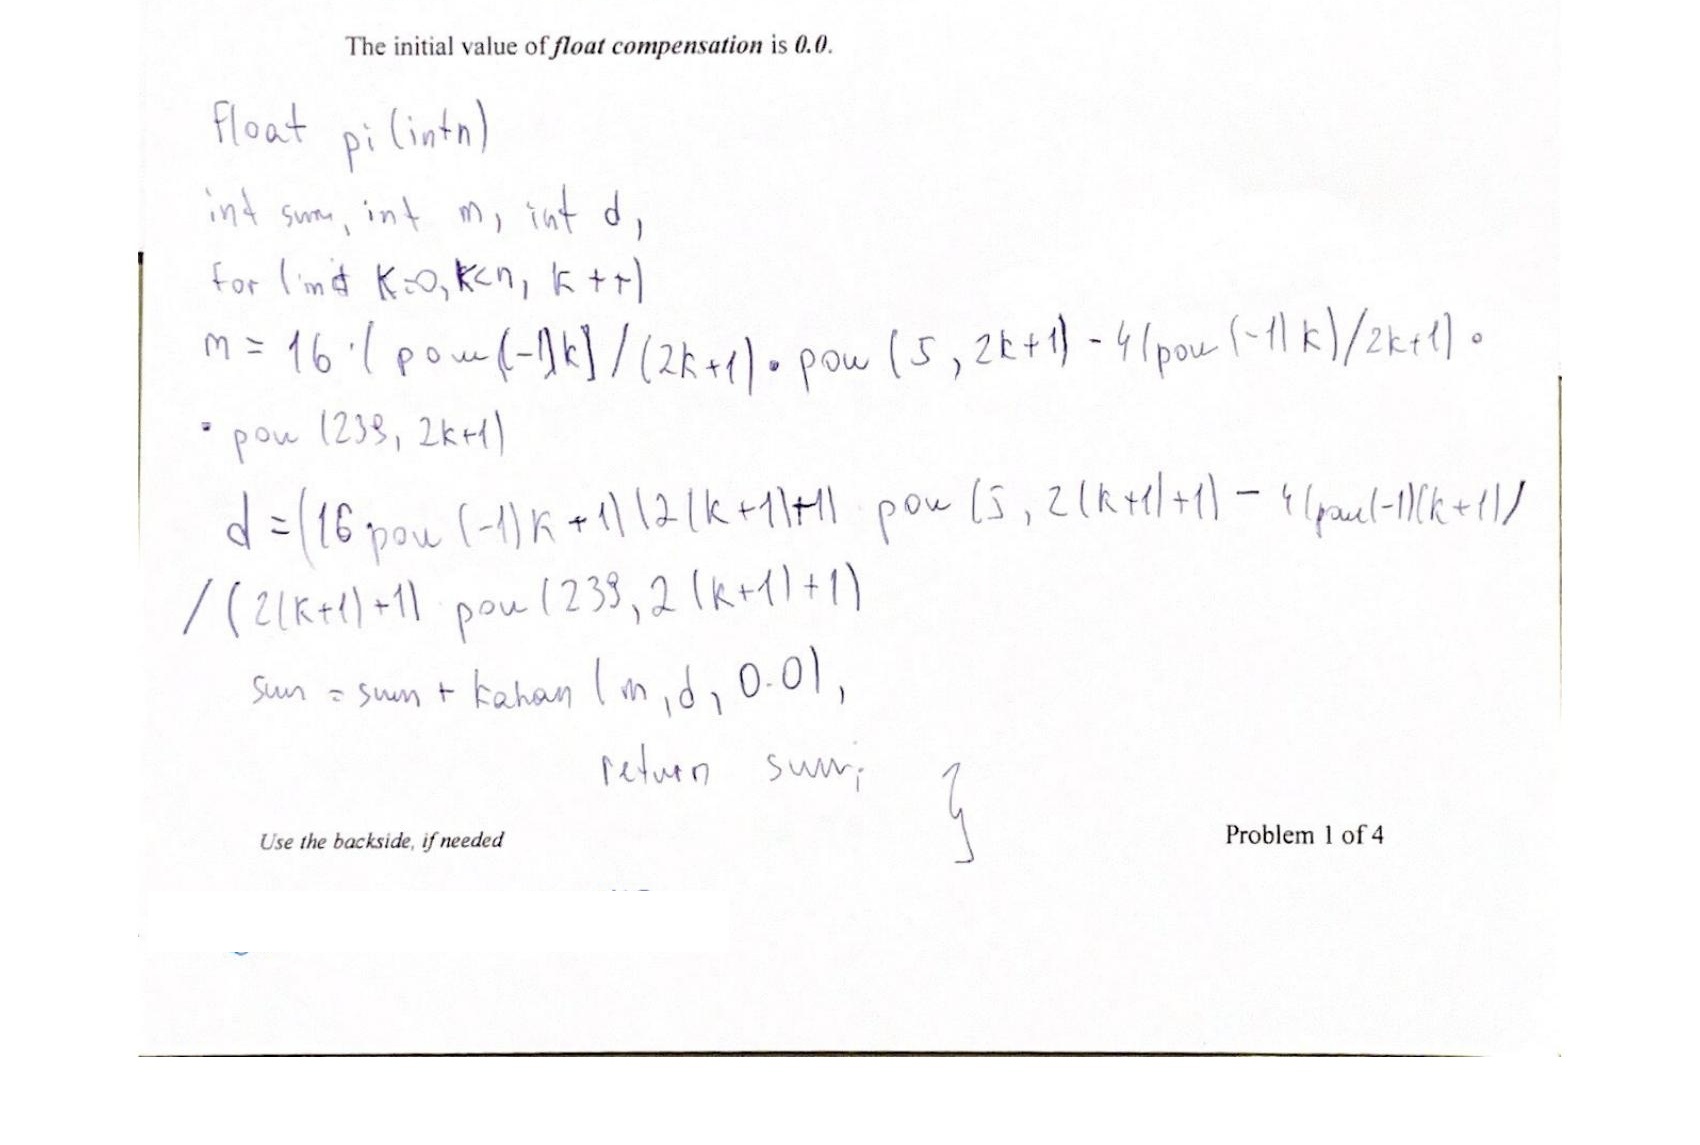 The initial value of float compensation is 0.0.
float pi (int n)
int sum, int m, int d,
for (int K=0, K<n, k++)
m = 16 · ( pow (-1)k) / (2k+1) · pow (5, 2k+1) - 4 (pow (-1) k) / 2k+1) ·
· pow (239, 2k+1)
d = (16 pow (-1) k + 1) (2 (k+1)+1) pow (5, 2 (k+1)+1) - 4 (pow(-1)(k+1) /
/ (2(k+1)+1) pow (239, 2 (k+1)+1)
sum = sum + kahan (m, d, 0.0),
return sum;
}
Use the backside, if needed
Problem 1 of 4